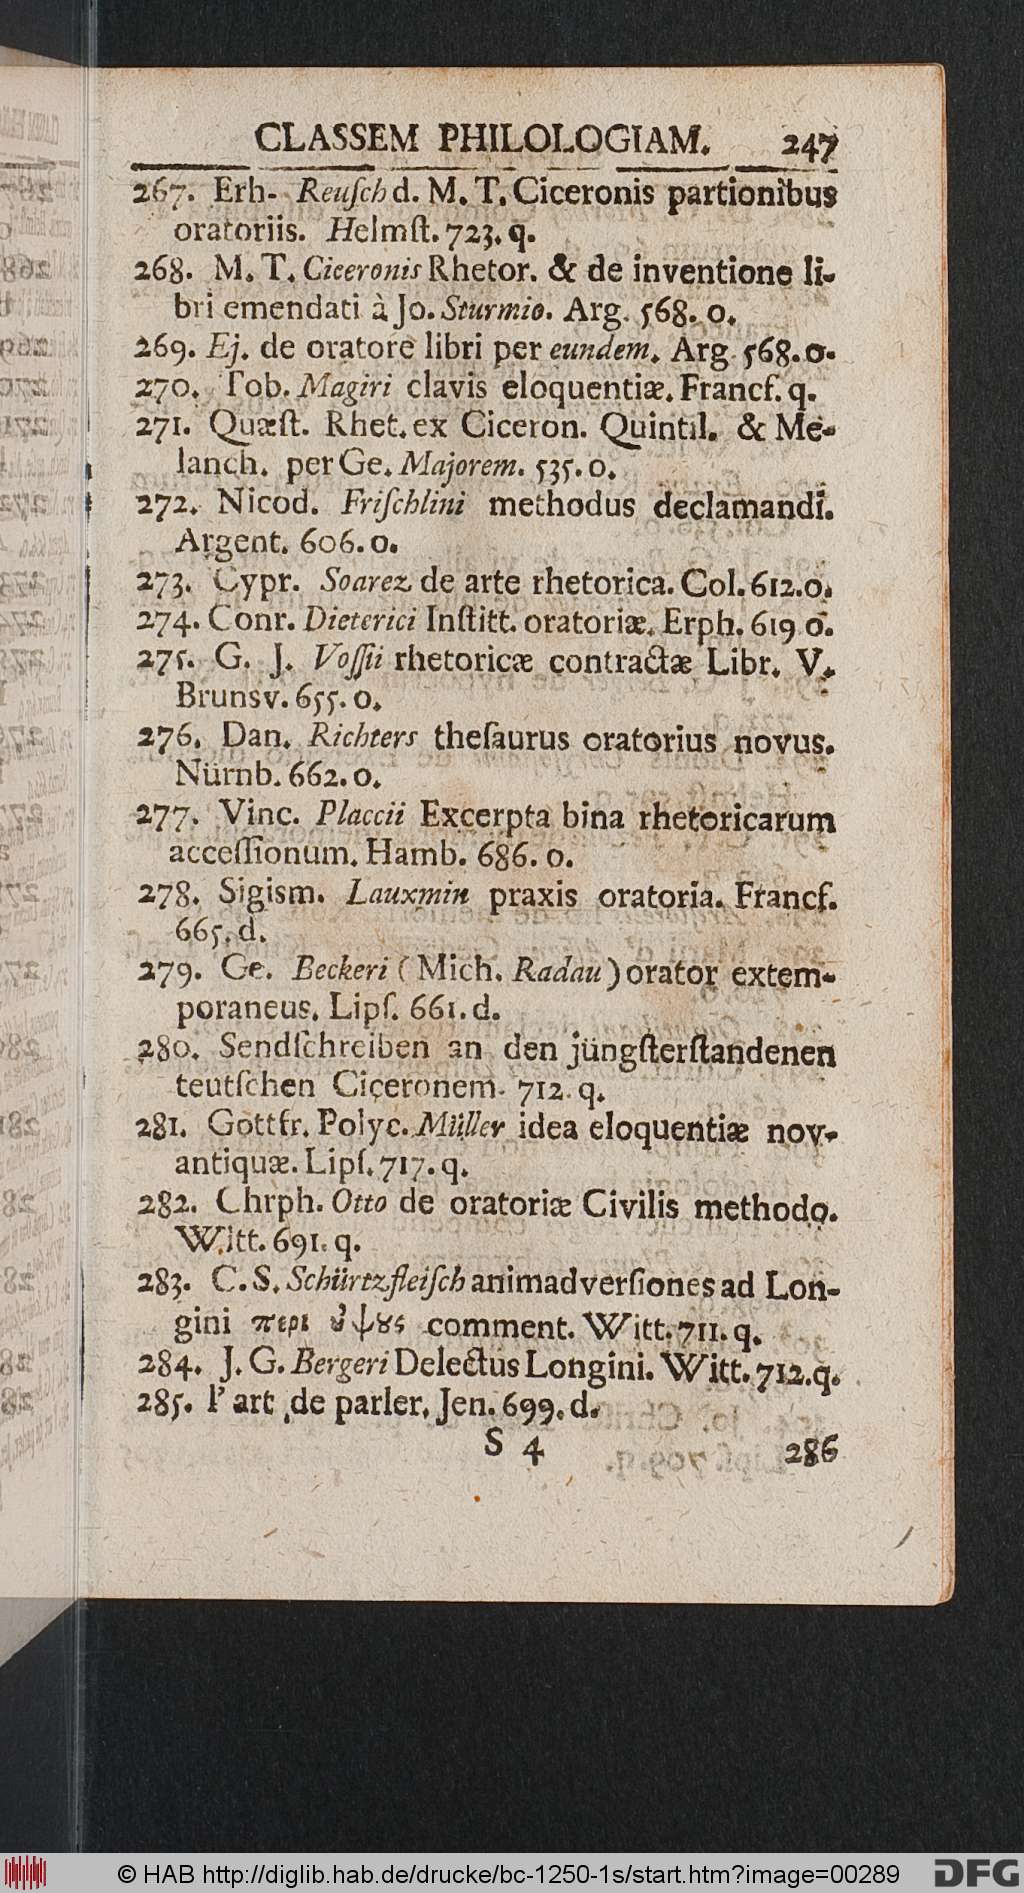 CLASSEM PHILOLOGIAM. 247
267. Erh- Reuſch d. M. T. Ciceronis partionibus
oratoriis. Helmſt. 723. q.
268. M. T. Ciceronis Rhetor. & de inventione li-
bri emendati à Jo. Sturmio. Arg. 568. o.
269. Ej. de oratore libri per eundem. Arg. 568. o.
270. Tob. Magiri clavis eloquentiæ. Francf. q.
271. Quæſt. Rhet. ex Ciceron. Quintil. & Me-
lanch. per Ge. Majorem. 535. o.
272. Nicod. Friſchlini methodus declamandi.
Argent. 606. o.
273. Cypr. Soarez de arte rhetorica. Col. 612. o.
274. Conr. Dieterici Inſtitt. oratoriæ. Erph. 619 o.
275. G. J. Voſſii rhetoricæ contractæ Libr. V.
Brunsv. 655. o.
276. Dan. Richters theſaurus oratorius novus.
Nürnb. 662. o.
277. Vinc. Placcii Excerpta bina rhetoricarum
acceſſionum. Hamb. 686. o.
278. Sigism. Lauxmin praxis oratoria. Francf.
665. d.
279. Ge. Beckeri (Mich. Radau) orator extem-
poraneus. Lipſ. 661. d.
280. Sendſchreiben an den jüngſterſtandenen
teutſchen Ciceronem. 712. q.
281. Gottfr. Polyc. Müller idea eloquentiæ nov-
antiquæ. Lipſ. 717. q.
282. Chrph. Otto de oratoriæ Civilis methodo.
Witt. 691. q.
283. C. S. Schürtzfleiſch animadverſiones ad Lon-
gini περι ὑψους comment. Witt. 711. q.
284. J. G. Bergeri Delectus Longini. Witt. 712. q.
285. l' art de parler. Jen. 699. d.
S 4 286
© HAB http://diglib.hab.de/drucke/bc-1250-1s/start.htm?image=00289 DFG